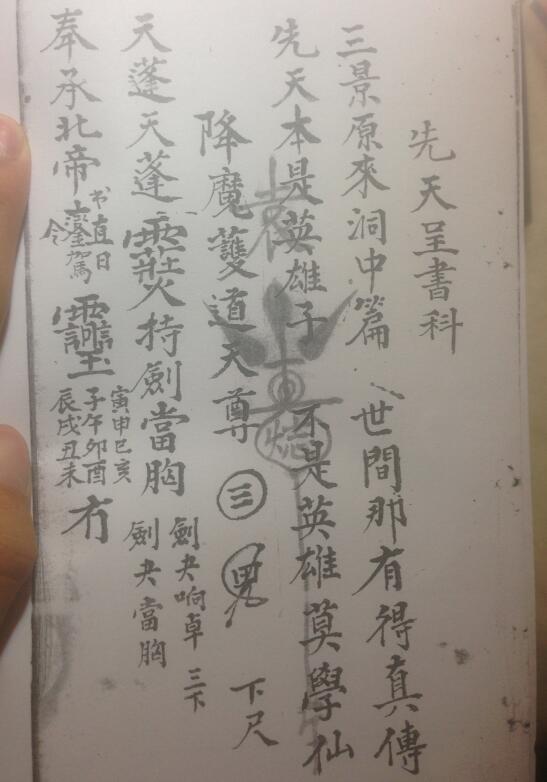 先天呈書科
三景原來洞中篇 世間那有得真傳
先天本是英雄子 不是英雄莫學仙
降魔護道天尊 三 下尺
天蓬天蓬 持劍當胸 劍夬响卓三下 劍夬當胸
奉承北帝 书直日 令 鑾駕 寅申巳亥 子午卯酉 辰戌丑未